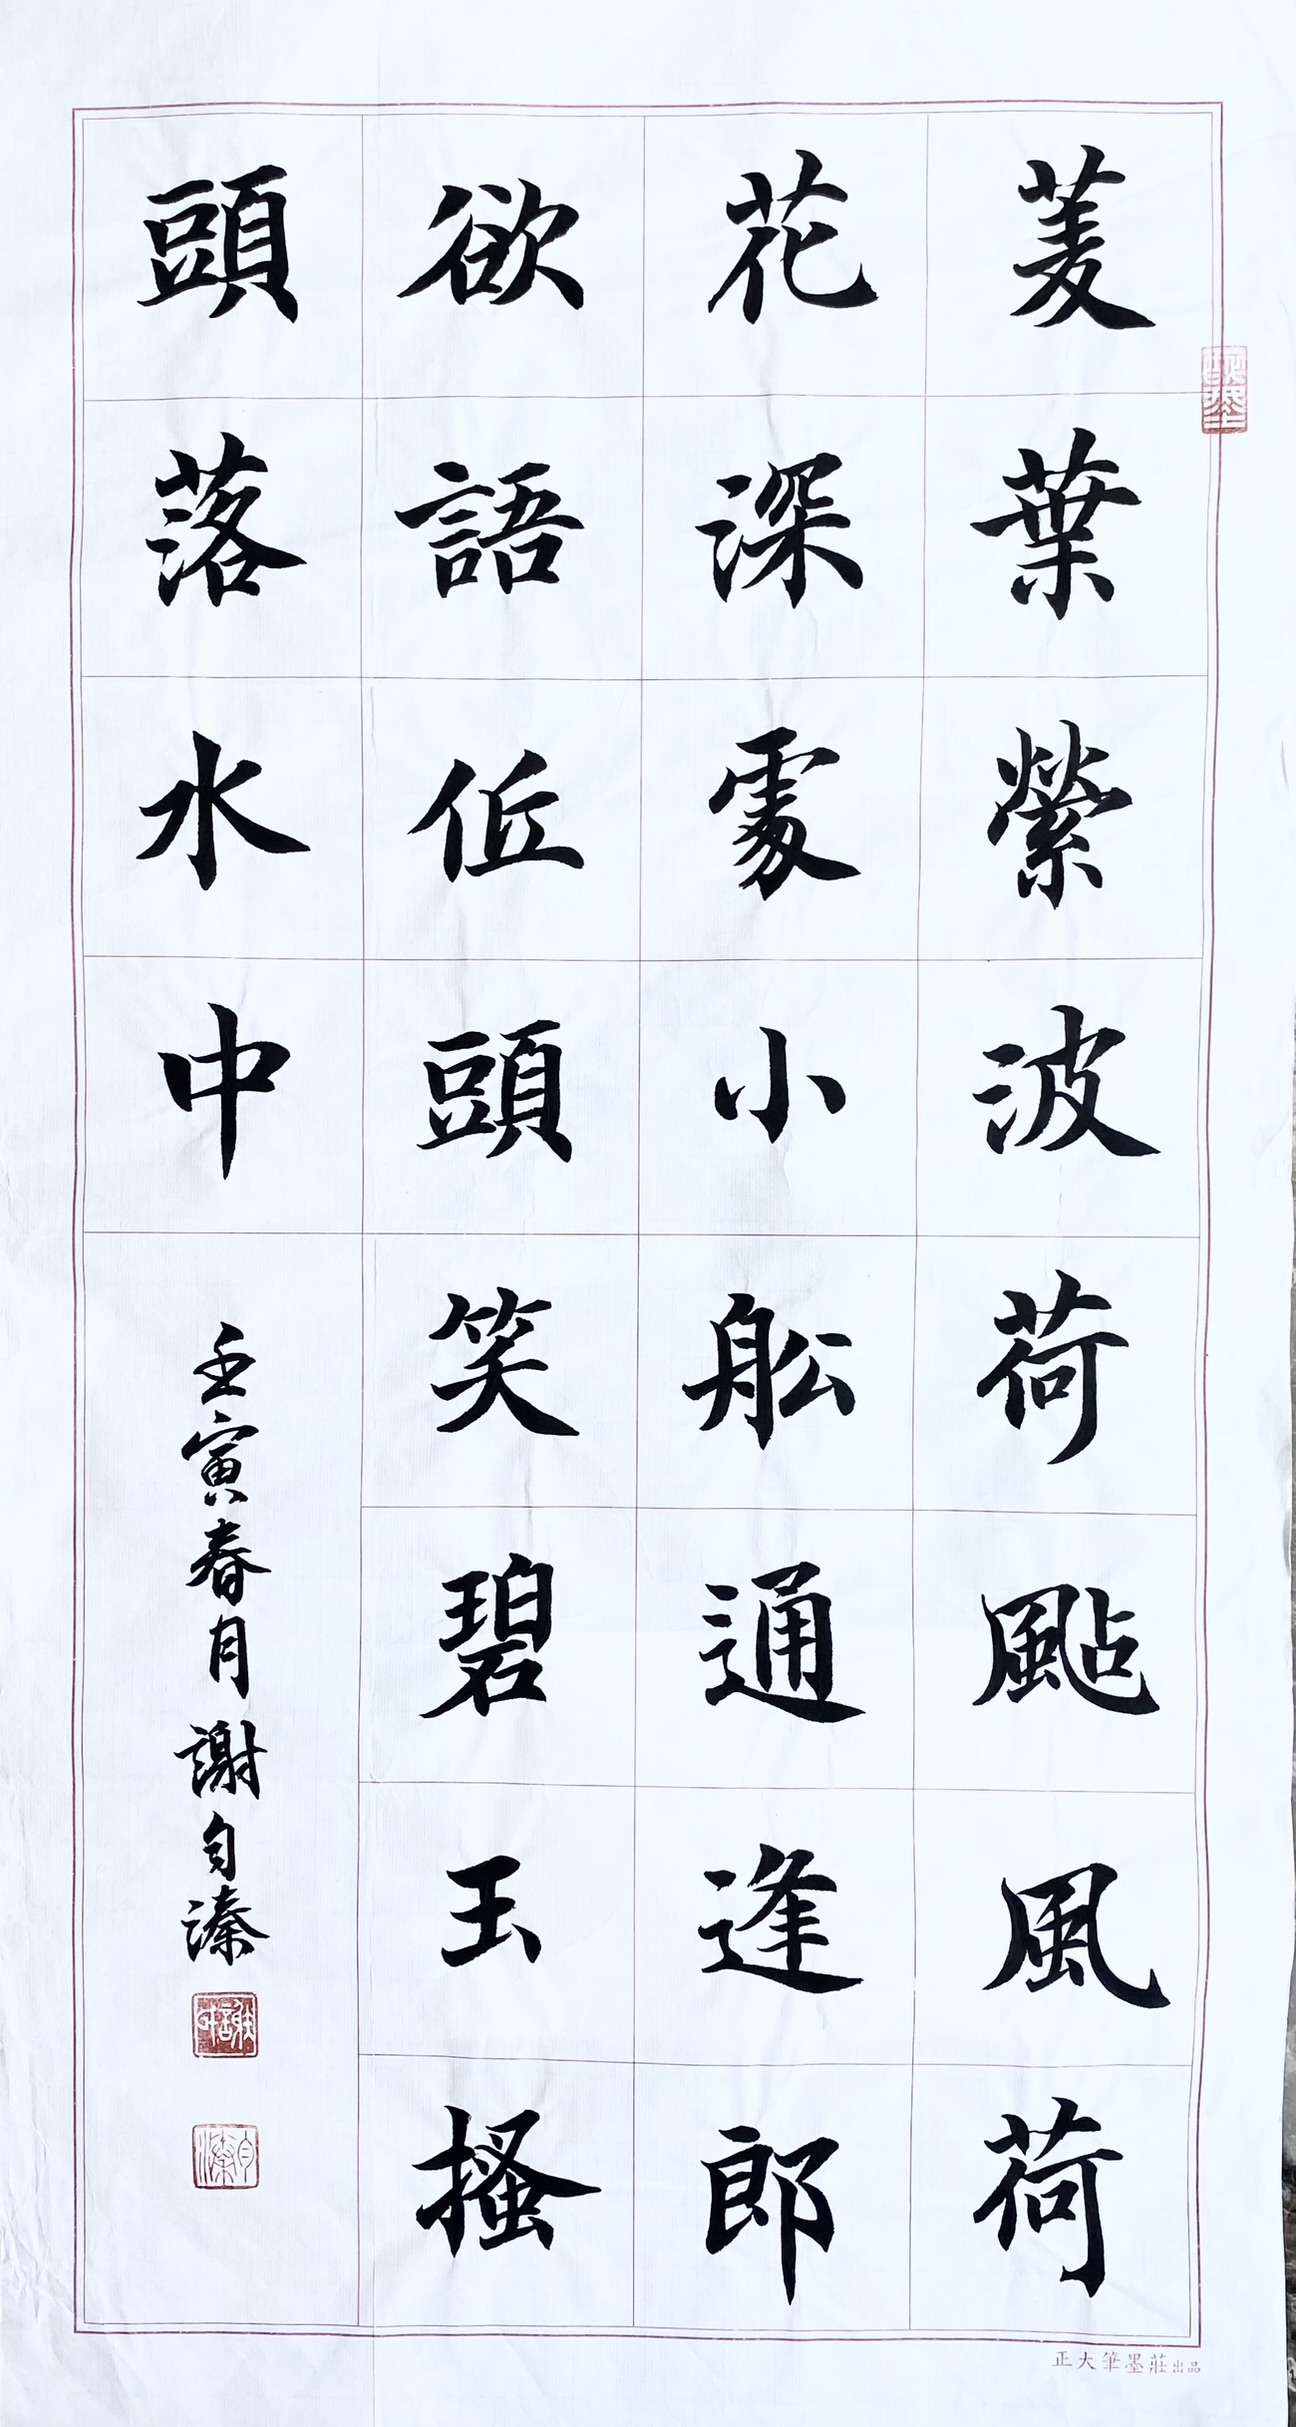 菱葉縈波荷颭風荷
花深處小舩通逢郎
欲語低頭笑碧玉搔
頭落水中
壬寅春月謝自溱
謝
自溱
正大筆墨莊出品